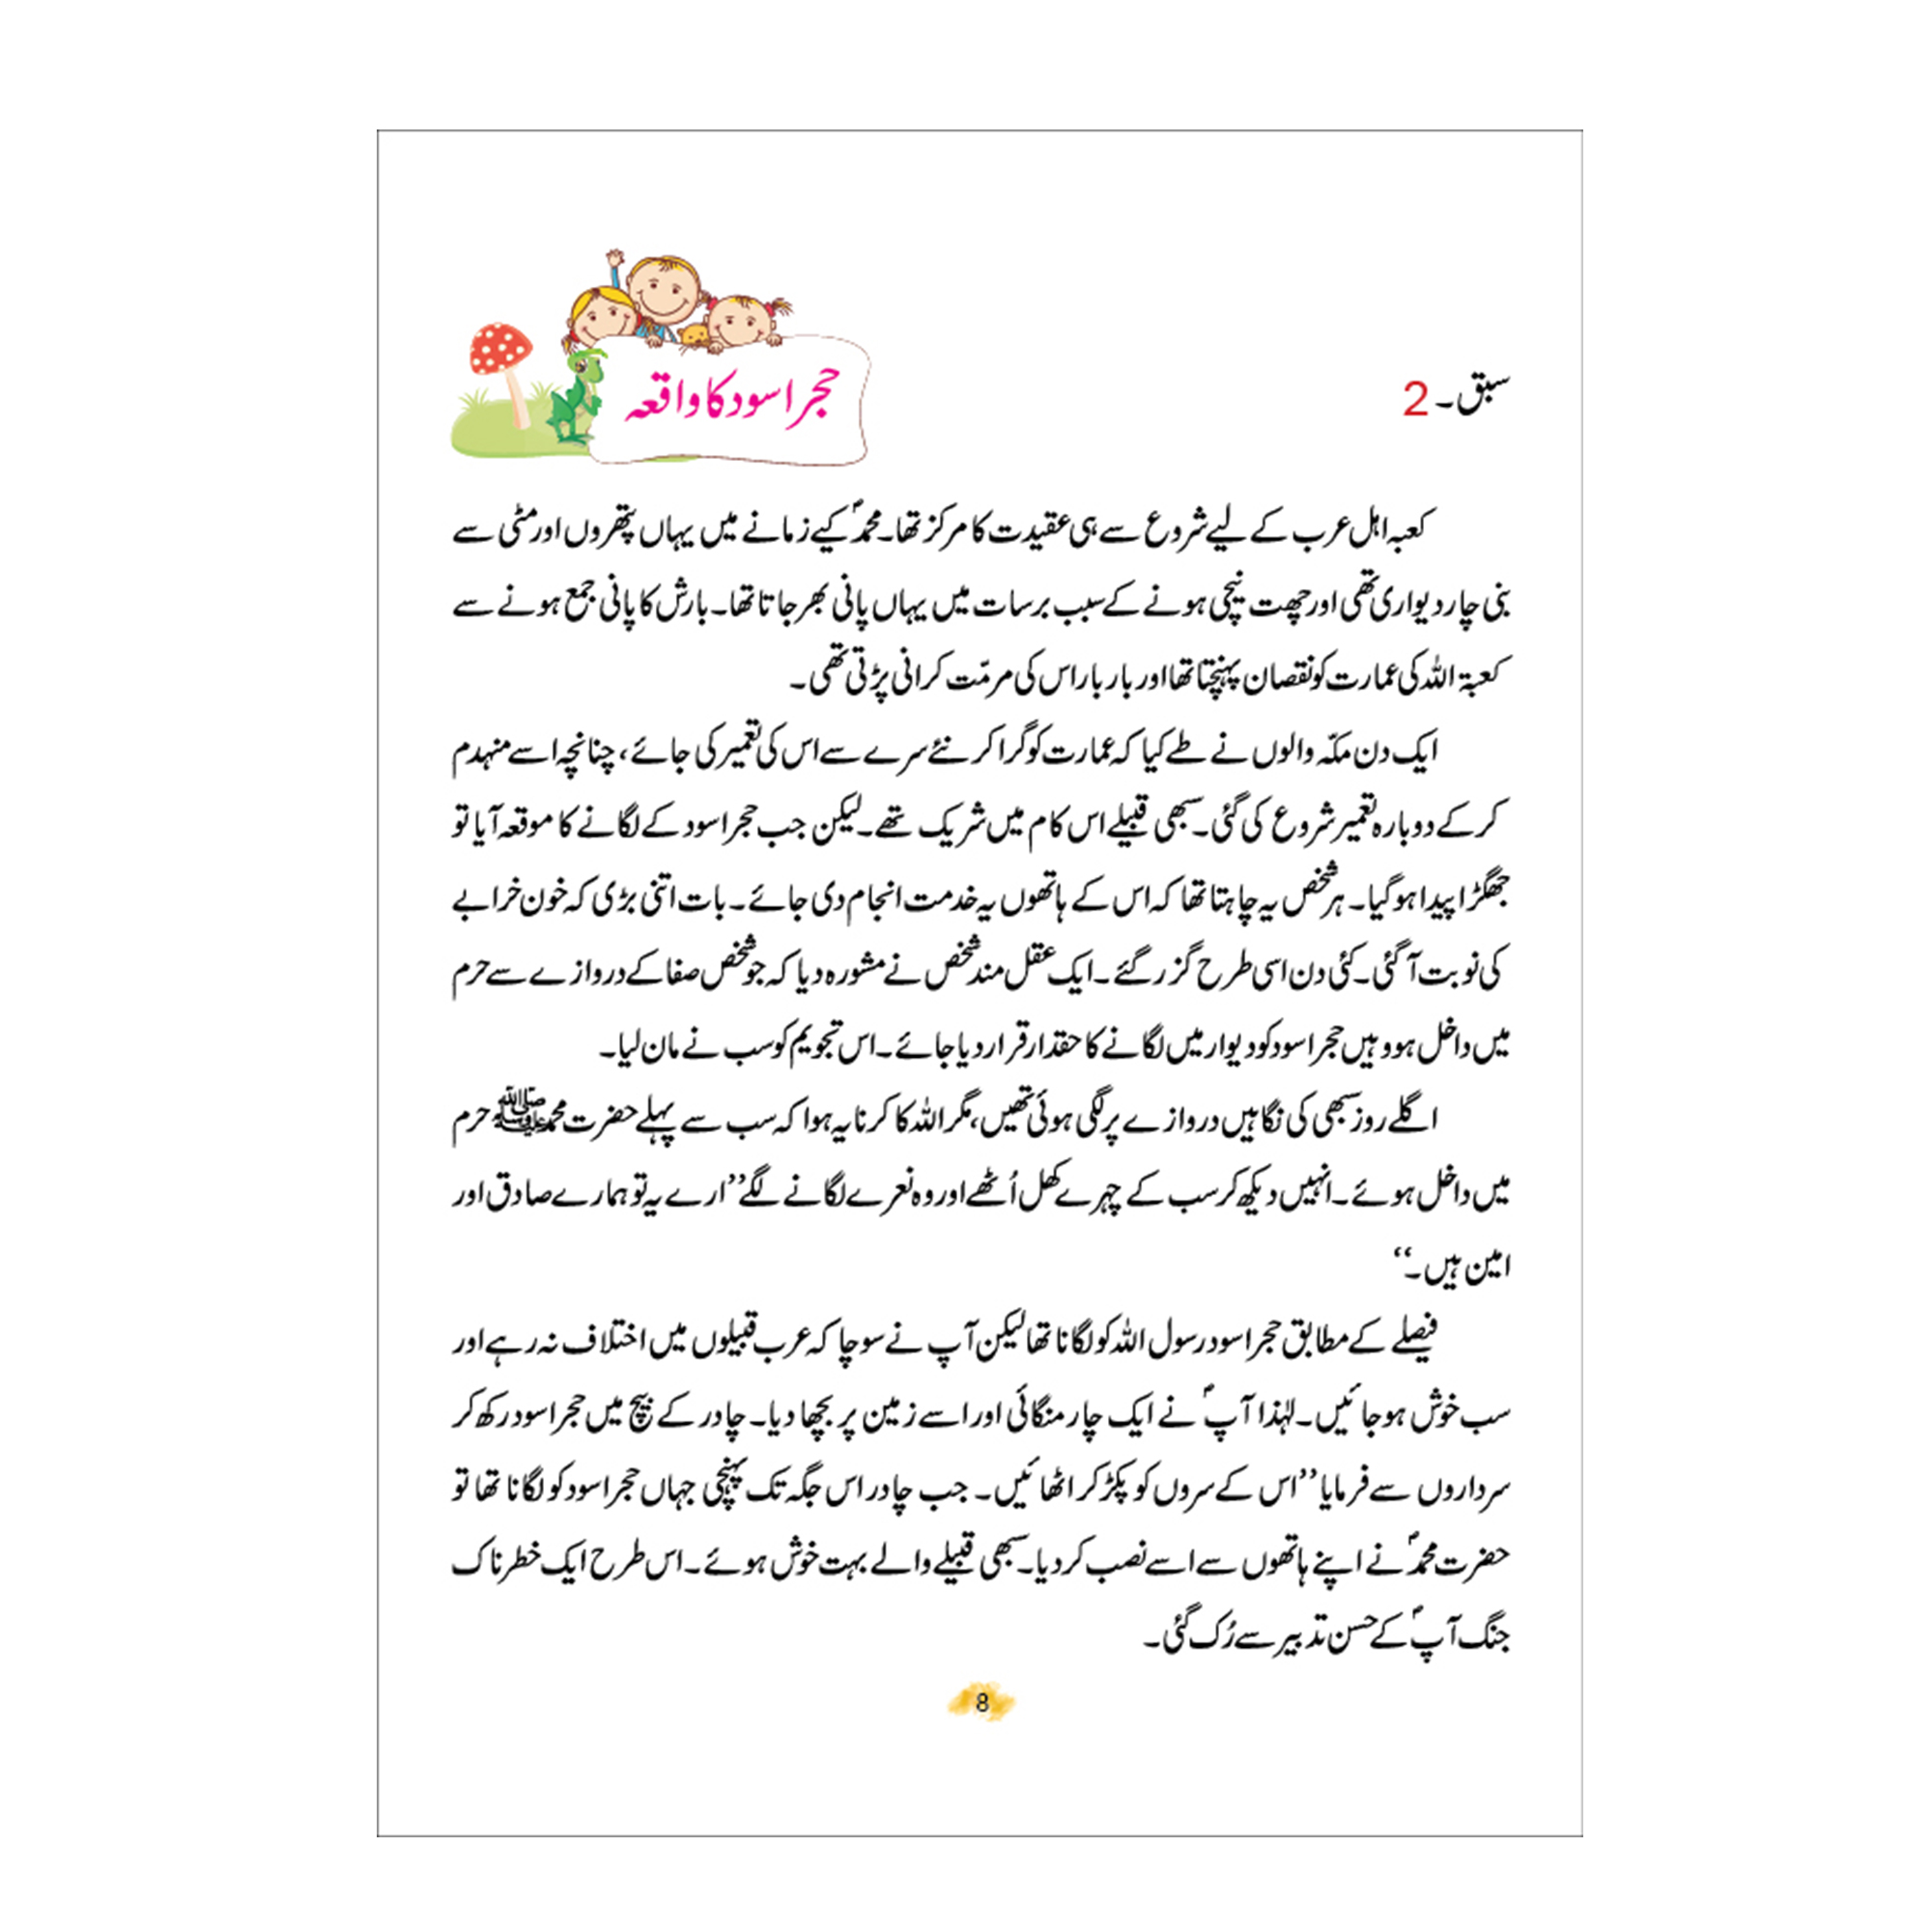 سبق۔ 2
حجر اسود کا واقعہ
کعبہ اہل عرب کے لیے شروع سے ہی عقیدت کا مرکز تھا۔ محمدؐ کیے زمانے میں یہاں پتھروں اور مٹی سے
بنی چار دیواری تھی اور چھت نیچی ہونے کے سبب برسات میں یہاں پانی بھر جاتا تھا۔ بارش کا پانی جمع ہونے سے
کعبۃ اللہ کی عمارت کو نقصان پہنچتا تھا اور بار بار اس کی مرمّت کرانی پڑتی تھی۔
ایک دن مکّہ والوں نے طے کیا کہ عمارت کو گرا کر نئے سرے سے اس کی تعمیر کی جائے، چنانچہ اسے منہدم
کر کے دوبارہ تعمیر شروع کی گئی۔ سبھی قبیلے اس کام میں شریک تھے۔ لیکن جب حجر اسود کے لگانے کا موقعہ آیا تو
جھگڑا پیدا ہو گیا۔ ہر شخص یہ چاہتا تھا کہ اس کے ہاتھوں یہ خدمت انجام دی جائے۔ بات اتنی بڑی کہ خون خرابے
کی نوبت آ گئی۔ کئی دن اسی طرح گزر گئے۔ ایک عقل مند شخص نے مشورہ دیا کہ جو شخص صفا کے دروازے سے حرم
میں داخل ہو وہیں حجر اسود کو دیوار میں لگانے کا حقدار قرار دیا جائے۔ اس تجویم کو سب نے مان لیا۔
اگلے روز سبھی کی نگاہیں دروازے پر لگی ہوئی تھیں، مگر اللہ کا کرنا یہ ہوا کہ سب سے پہلے حضرت محمد ﷺ حرم
میں داخل ہوئے۔ انہیں دیکھ کر سب کے چہرے کھل اُٹھے اور وہ نعرے لگانے لگے ’’ارے یہ تو ہمارے صادق اور
امین ہیں۔‘‘
فیصلے کے مطابق حجر اسود رسول اللہ کو لگانا تھا لیکن آپ نے سوچا کہ عرب قبیلوں میں اختلاف نہ رہے اور
سب خوش ہو جائیں۔ لہٰذا آپؐ نے ایک چار منگائی اور اسے زمین پر بچھا دیا۔ چادر کے بیچ میں حجر اسود رکھ کر
سرداروں سے فرمایا ’’اس کے سروں کو پکڑ کر اٹھائیں۔ جب چادر اس جگہ تک پہنچی جہاں حجر اسود کو لگانا تھا تو
حضرت محمدؐ نے اپنے ہاتھوں سے اسے نصب کر دیا۔ سبھی قبیلے والے بہت خوش ہوئے۔ اس طرح ایک خطرناک
جنگ آپؐ کے حسن تدبیر سے رُک گئی۔
8